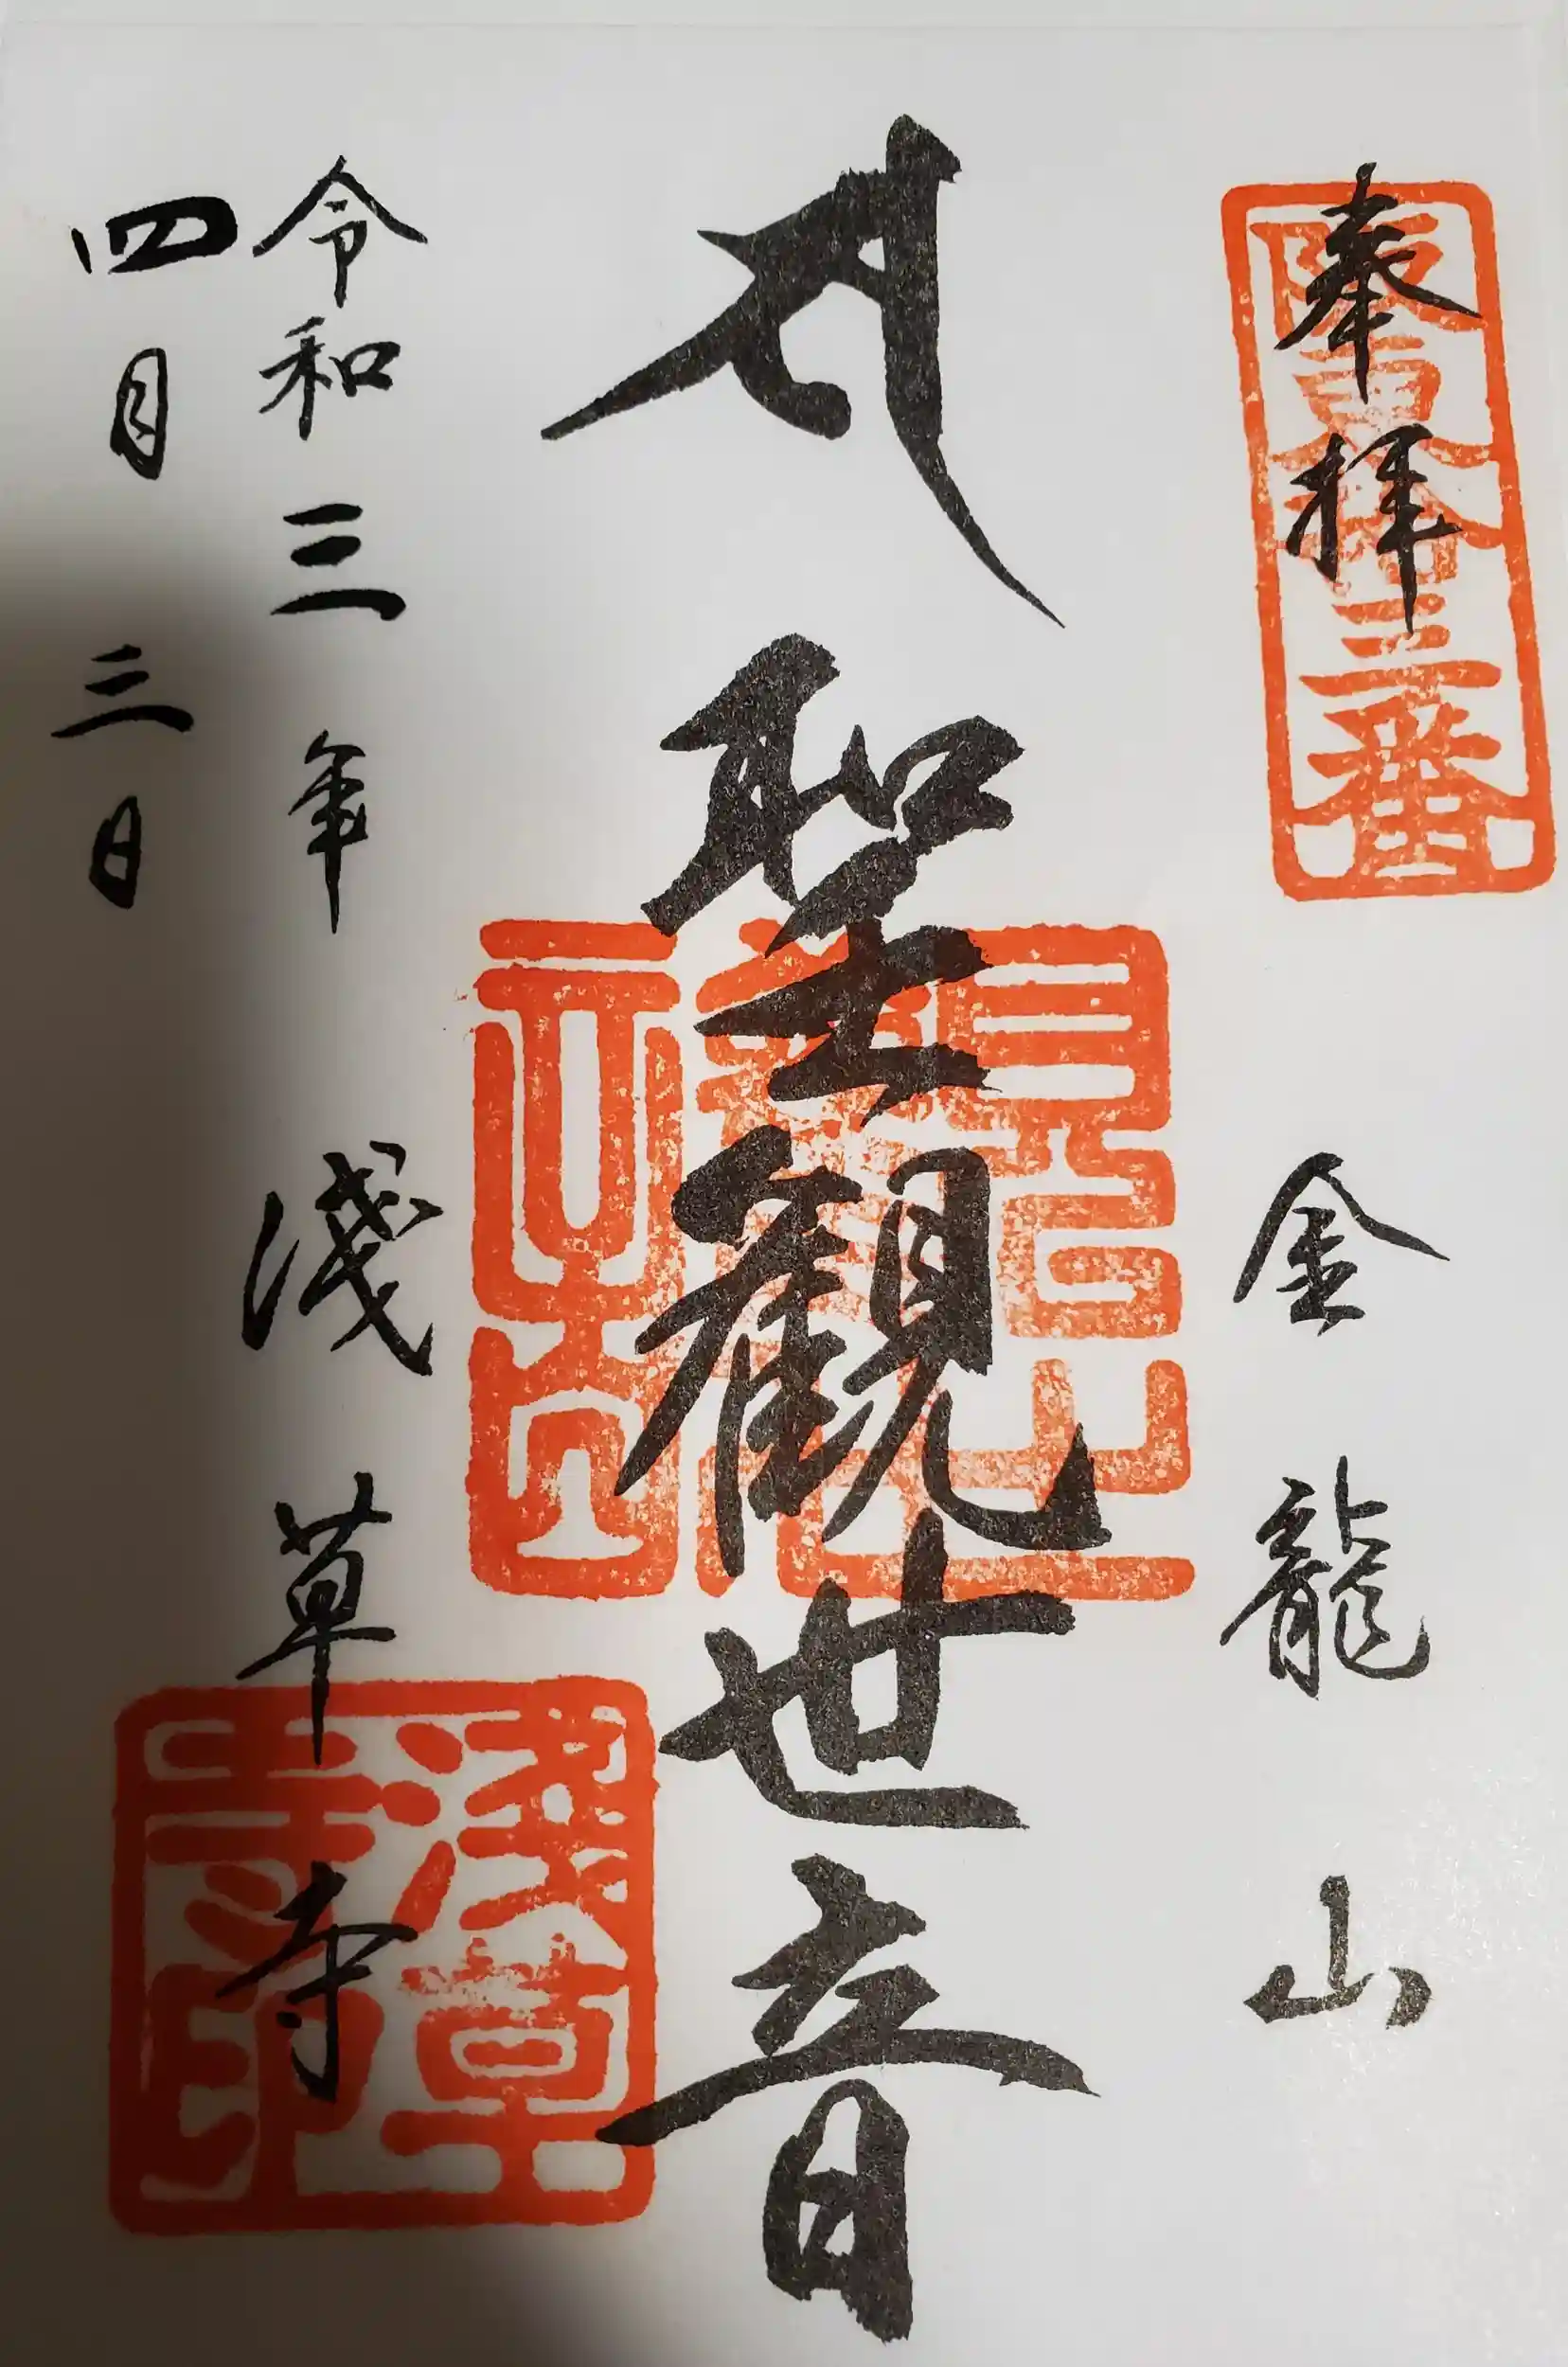 奉拝
阪東拾三番
金龍山
聖観世音
令和三年
四月三日
淺草寺
淺草寺印